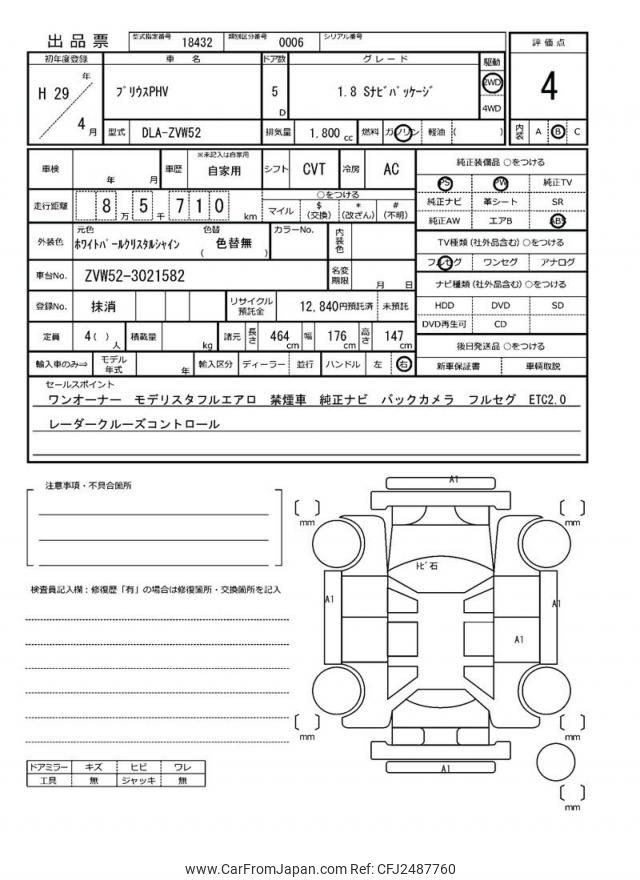 出品票 型式指定番号 18432 類別区分番号 0006 シリアル番号
初年度登録 車 名 ドア数 グレード 駆動 評価点
H 29 年 4 月 プリウスPHV 5 D 1.8 Sナビパッケージ 2WD 4WD 4
型式 DLA-ZVW52 排気量 1,800 cc 燃料 ガソリン 軽油 ( ) 内装 A B C
車検 年 月 車歴 ※未記入は自家用 自家用 シフト CVT 冷房 AC 純正装備品 ○をつける
PS PW 純正TV
走行距離 8 万 5 千 7 1 0 km ○をつける
マイル $ (交換) * (改ざん) # (不明)
純正ナビ 革シート SR
純正AW エアB ABS
外装色 元色 ホワイトパールクリスタルシャイン 色替 ( 色替無 ) カラーNo. 内装色
TV種類 (社外品含む) ○をつける
フルセグ ワンセグ アナログ
車台No. ZVW52-3021582 名変期限 月 日
ナビ種類 (社外品含む) ○をつける
登録No. 抹消 リサイクル預託金 12,840円預託済 未預託
HDD DVD SD
DVD再生可 CD
定員 4( ) 人 積載量 kg 諸元 長さ 464 cm 幅 176 cm 高さ 147 cm
後日発送品 ○をつける
輸入車のみ⇒ モデル年式 年 輸入区分 ディーラー 並行 ハンドル 左 右 新車保証書 車輌取説
セールスポイント
ワンオーナー モデリスタフルエアロ 禁煙車 純正ナビ バックカメラ フルセグ ETC2.0
レーダークルーズコントロール
注意事項・不具合箇所
検査員記入欄：修復歴「有」の場合は修復箇所・交換箇所を記入
A1
mm
mm
トビ石
A1
A1
A1
mm
mm
A1
mm
ドアミラー キズ ヒビ ワレ
工具 無 ジャッキ 無
www.CarFromJapan.com Ref: CFJ2487760